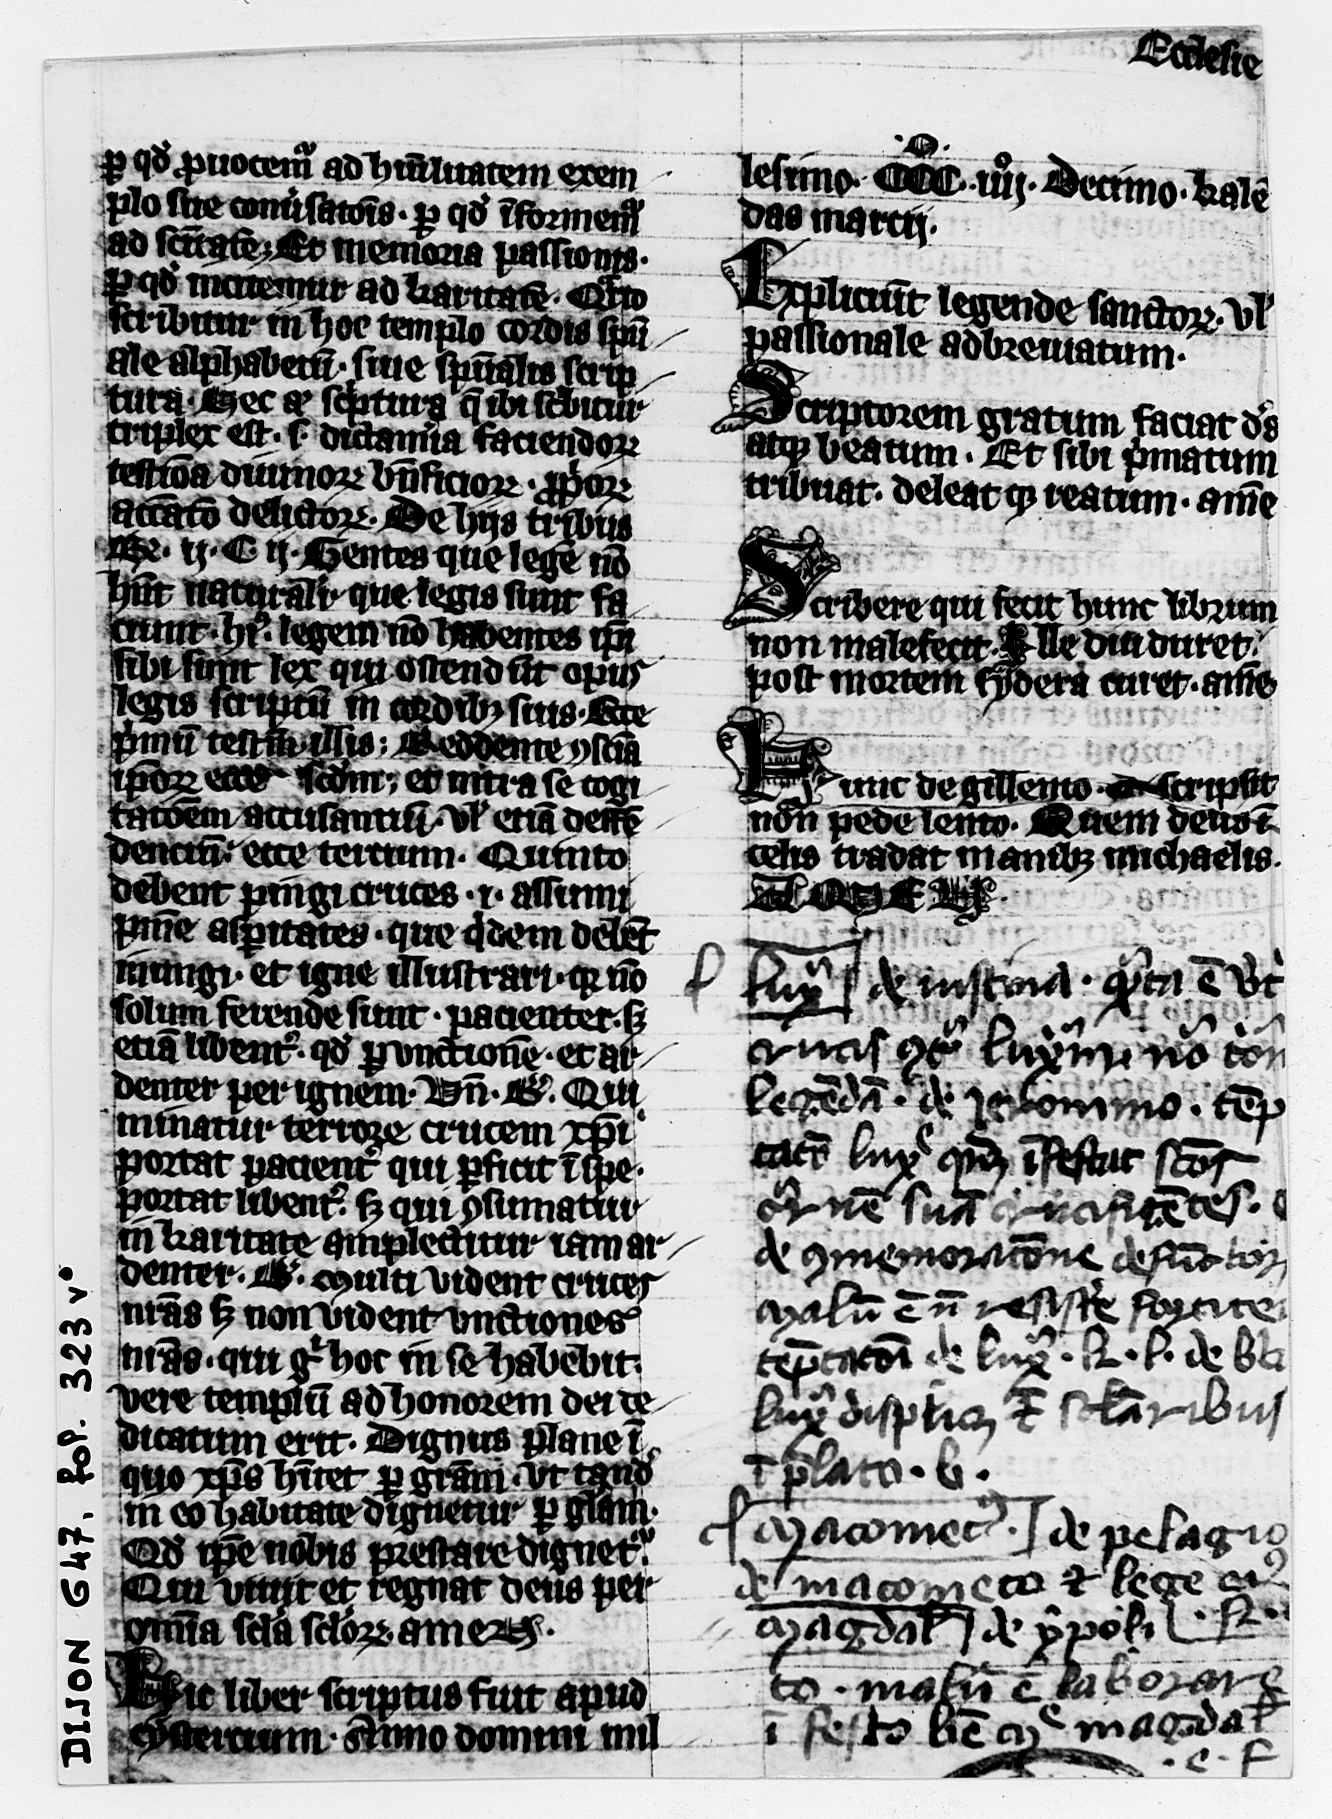 Ecclesie
p qd puocem ad huilitatem exem
plo sue conuisatois. p qd iformem
ad scitate; Et memoria passionis.
p qd incitemur ad karitate. Qrto
scribitur in hoc templo cordis spu
ale alphabetu. siue spualis scrip
tura. Hec at scptura q ibi scbitur
triplex est. s. dictamia faciendor
testioa diuinor bnficior. ppor
accato delictor. De hijs tribus
Ro. ij. C. ij. Gentes que lege no
hnt naturalr que legis sunt fa
ciunt. hi. legem no habentes ipi
sibi sunt lex qui ostendut opus
legis scriptu in cordib suis. Ecce
pmu testim illis: Reddente sciā
ipor ecce scdm; et intra se cogi
tatoem accusantiu. vl etiā deffe
dentiu. ecce tercium. Quinto
debent pingi cruces. i. assumi
pnie aspitates. que qdem debet
inungi. et igne illustrari. qr no
solum ferende sunt. pacienter. s
etiā libent. qd p vnctione. et ar
denter per ignem. Vn. B. Qui
minatur terrore crucem xpi
portat pacient qui pficit i spe.
portat libent. s qui ꝯsumatur
in karitate amplectitur iam ar
denter. B. Multi vident cruces
nras s non vident vnctiones
nras. qui g hoc in se habebit.
vere templu ad honorem dei de
dicatum erit. Dignus plane i
quo xps hitet p gram. vt tand
in eo habitare dignetur p glam.
Qd ipe nobis prestare dignet.
Qui viuit et regnat deus per
omia scla sclor. amen.
Hic liber scriptus fuit apud
cystercium. Anno domini mil
lesimo. CCC. iiij. Decimo. kale
das marcij.
Expliciut legende sanctor. vl
passionale adbreuiatum.
Scriptorem gratum faciat ds
atq beatum. Et sibi pmatum
tribuat. deleat q reatum. ame
Scribere qui fecit hunc librum
non malefecit. Ille diu duret.
post mortem sydera curet. ame
Hunc de gillemo scripsit
non pede lento. Quem deus i
celis tradat manib michaelis.
AMEN.
lux de iusticia. qrta e vt
crucis ꝯt luxur no
legēdā. de Jeronimo. tēp
tatr lux isestat scos
carne suā crucifigētes.
de ꝯmemoratione defuctor
malu ē n resistere fortiter
tēptatoi de lux. k. l. de
lux displic
i plato. b.
Macomet. de pelagio
de macometo z lege
Magdal de ypoli
to. malu ē laborare
i festo be M magdal
.e. f
DIJON 647, fol. 323 v°